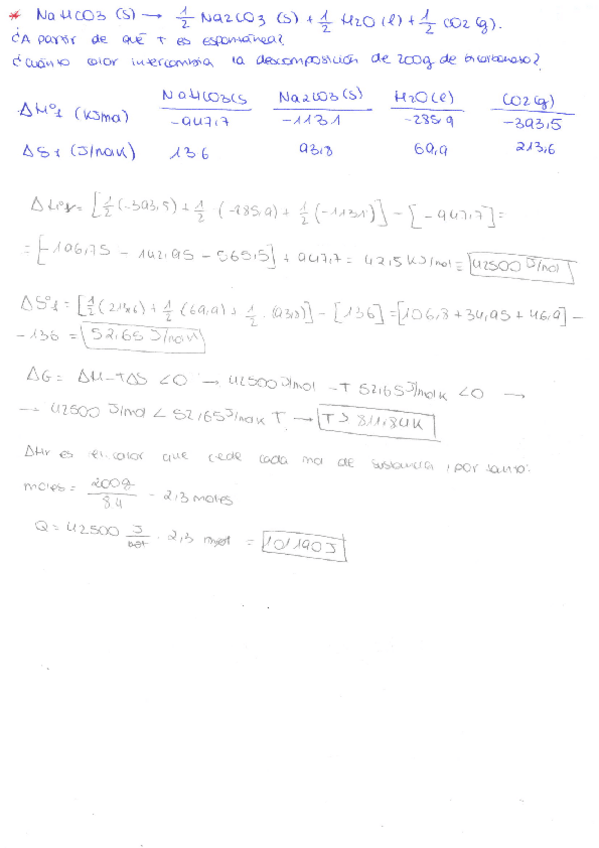 * NaHCO3 (s) → 1/2 Na2CO3 (s) + 1/2 H2O (l) + 1/2 CO2 (g).
¿A partir de qué T es espontánea?
¿Cuánto calor intercambia la descomposición de 200g de bicarbonato?
NaHCO3(s Na2CO3(s) H2O(l) CO2(g)
ΔHº1 (KJmol) -947,7 -1131 -285,9 -393,5
ΔSº1 (J/molK) 136 93,8 69,9 213,6
= [1/2 (-393,5) + 1/2 · (-285,9) + 1/2 (-1131)] - [-947,7] =
= [-196,75 - 142,95 - 565,5] + 947,7 = 42,5 KJ/mol = 42500 J/mol
ΔSº1 = [1/2 (213,6) + 1/2 (69,9) + 1/2 · (93,8)] - [136] = [106,8 + 34,95 + 46,9] -
- 136 = 52,65 J/molK
ΔG = ΔH - TΔS < 0 → 42500 J/mol - T 52,65 J/molK < 0 →
→ 42500 J/mol < 52,65 J/molK T → T > 811,84K
ΔHr es el calor que cede cada mol de sustancia, por tanto:
moles = 200g / 84 = 2,3 moles
Q = 42500 J/mol · 2,3 mol = 101190J